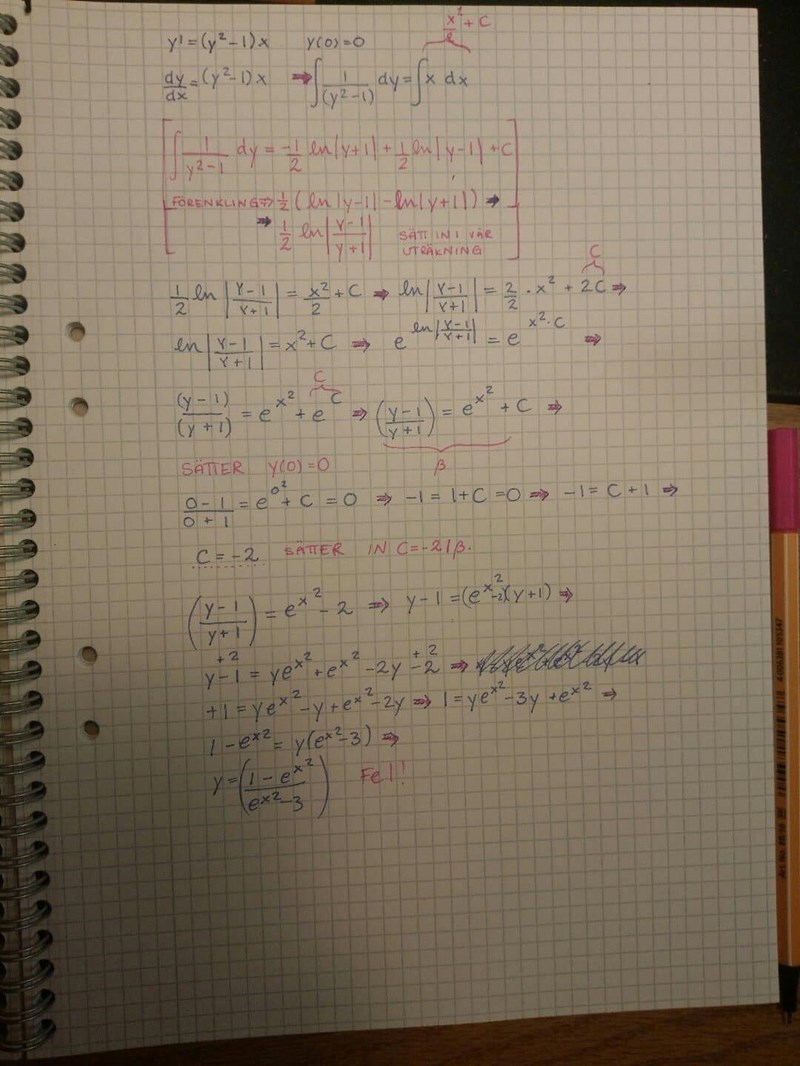 x² + C
2
y' = (y²-1)x y(0)=0
dy/dx = (y²-1)x ⇒ ∫ 1/(y²-1) dy = ∫ x dx
[∫ 1/(y²-1) dy = -1/2 ln|y+1| + 1/2 ln|y-1| + C
FÖRENKLING ⇒ 1/2 (ln|y-1| - ln|y+1|) ⇒
⇒ 1/2 ln|(y-1)/(y+1)| SÄTT IN I VÅR
UTRÄKNING]
C
1/2 ln|(y-1)/(y+1)| = x²/2 + C ⇒ ln|(y-1)/(y+1)| = 2/2 · x² + 2C ⇒
ln|(y-1)/(y+1)| = x² + C ⇒ e^(ln|(y-1)/(y+1)|) = e^(x²·C) ⇒
C
(y-1)/(y+1) = e^(x²) + e^C ⇒ ((y-1)/(y+1)) = e^(x²) + C ⇒
SÄTTER y(0)=0 β
(0-1)/(0+1) = e^(0²) + C = 0 ⇒ -1 = 1+C = 0 ⇒ -1 = C+1 ⇒
C = -2 SÄTTER IN C=-2 I β.
((y-1)/(y+1)) = e^(x²) - 2 ⇒ y-1 = (e^(x²)-2)(y+1) ⇒
+2 +2
y-1 = ye^(x²) + e^(x²) - 2y - 2 ⇒
+1 = ye^(x²) - y + e^(x²) - 2y ⇒ 1 = ye^(x²) - 3y + e^(x²) ⇒
1 - e^(x²) = y(e^(x²) - 3) ⇒
y = ((1 - e^(x²))/(e^(x²) - 3)) Fel!